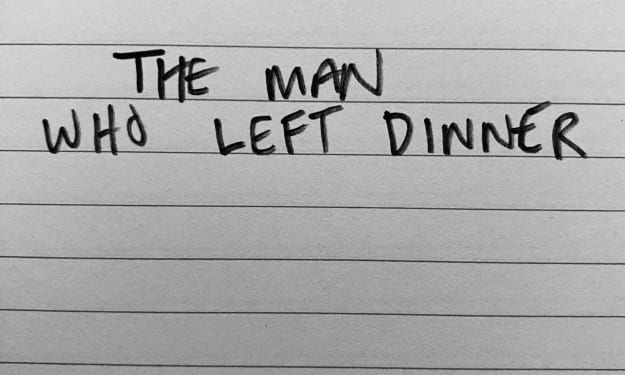 THE MAN
WHO LEFT DINNER